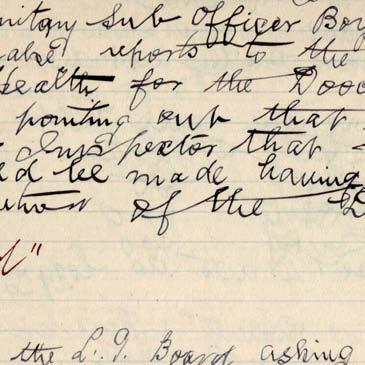 nitary Sub Officer Boy
reports to the
Health for the Dooc
pointing out that
Inspector that
d be made having
of the D
"
the L. G. Board asking